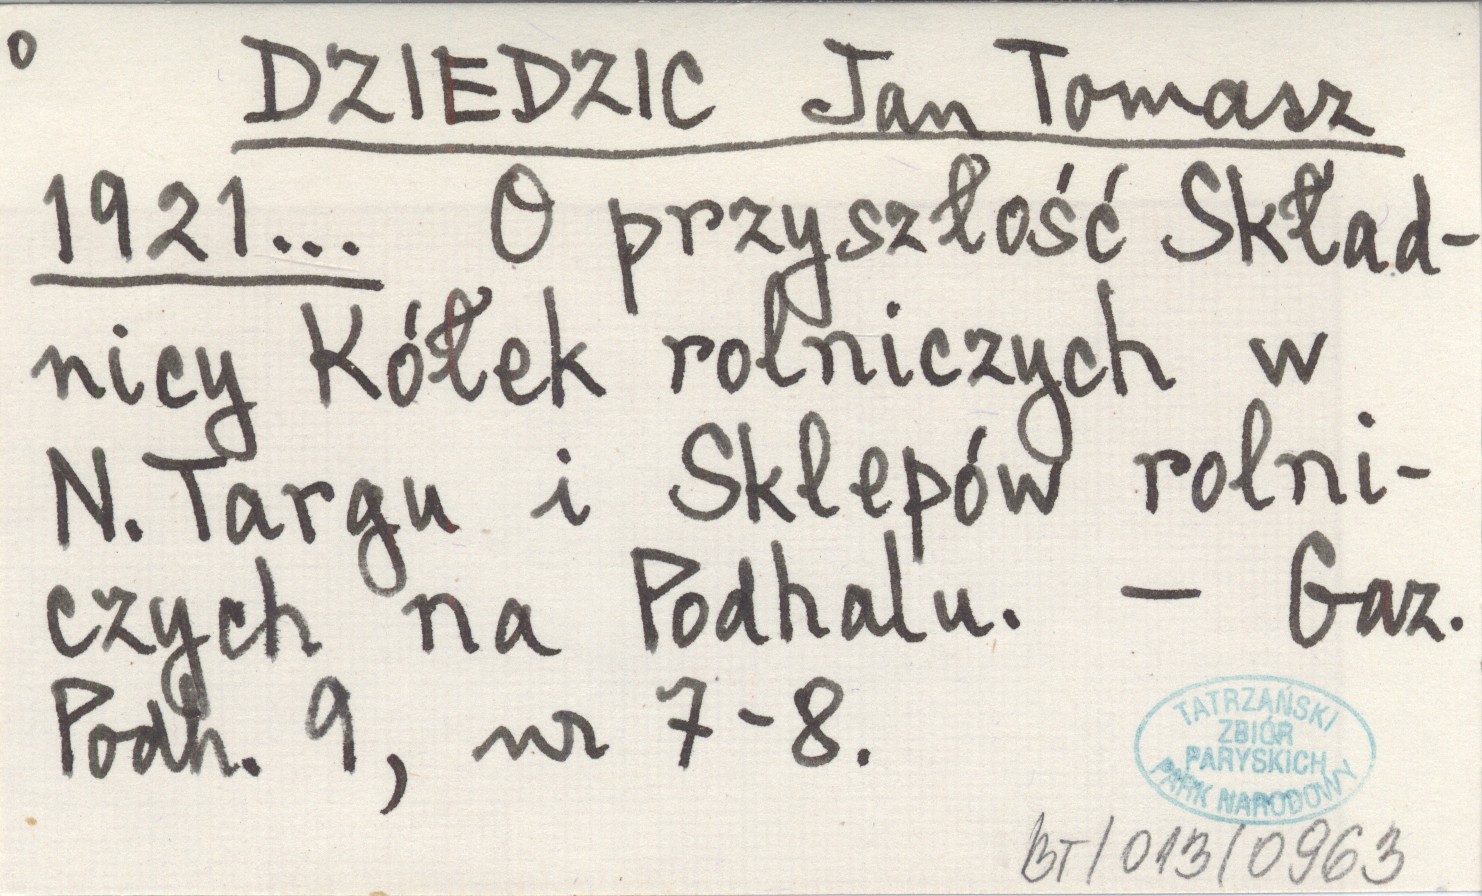 o DZIEDZIC Jan Tomasz
1921... O przyszłość Skład-
nicy Kółek rolniczych w
N. Targu i Sklepów rolni-
czych na Podhalu. – Gaz.
Podh. 9, nr 7-8.
TATRZAŃSKI
ZBIÓR
PARYSKICH
PARK NARODOWY
BT/013/0963